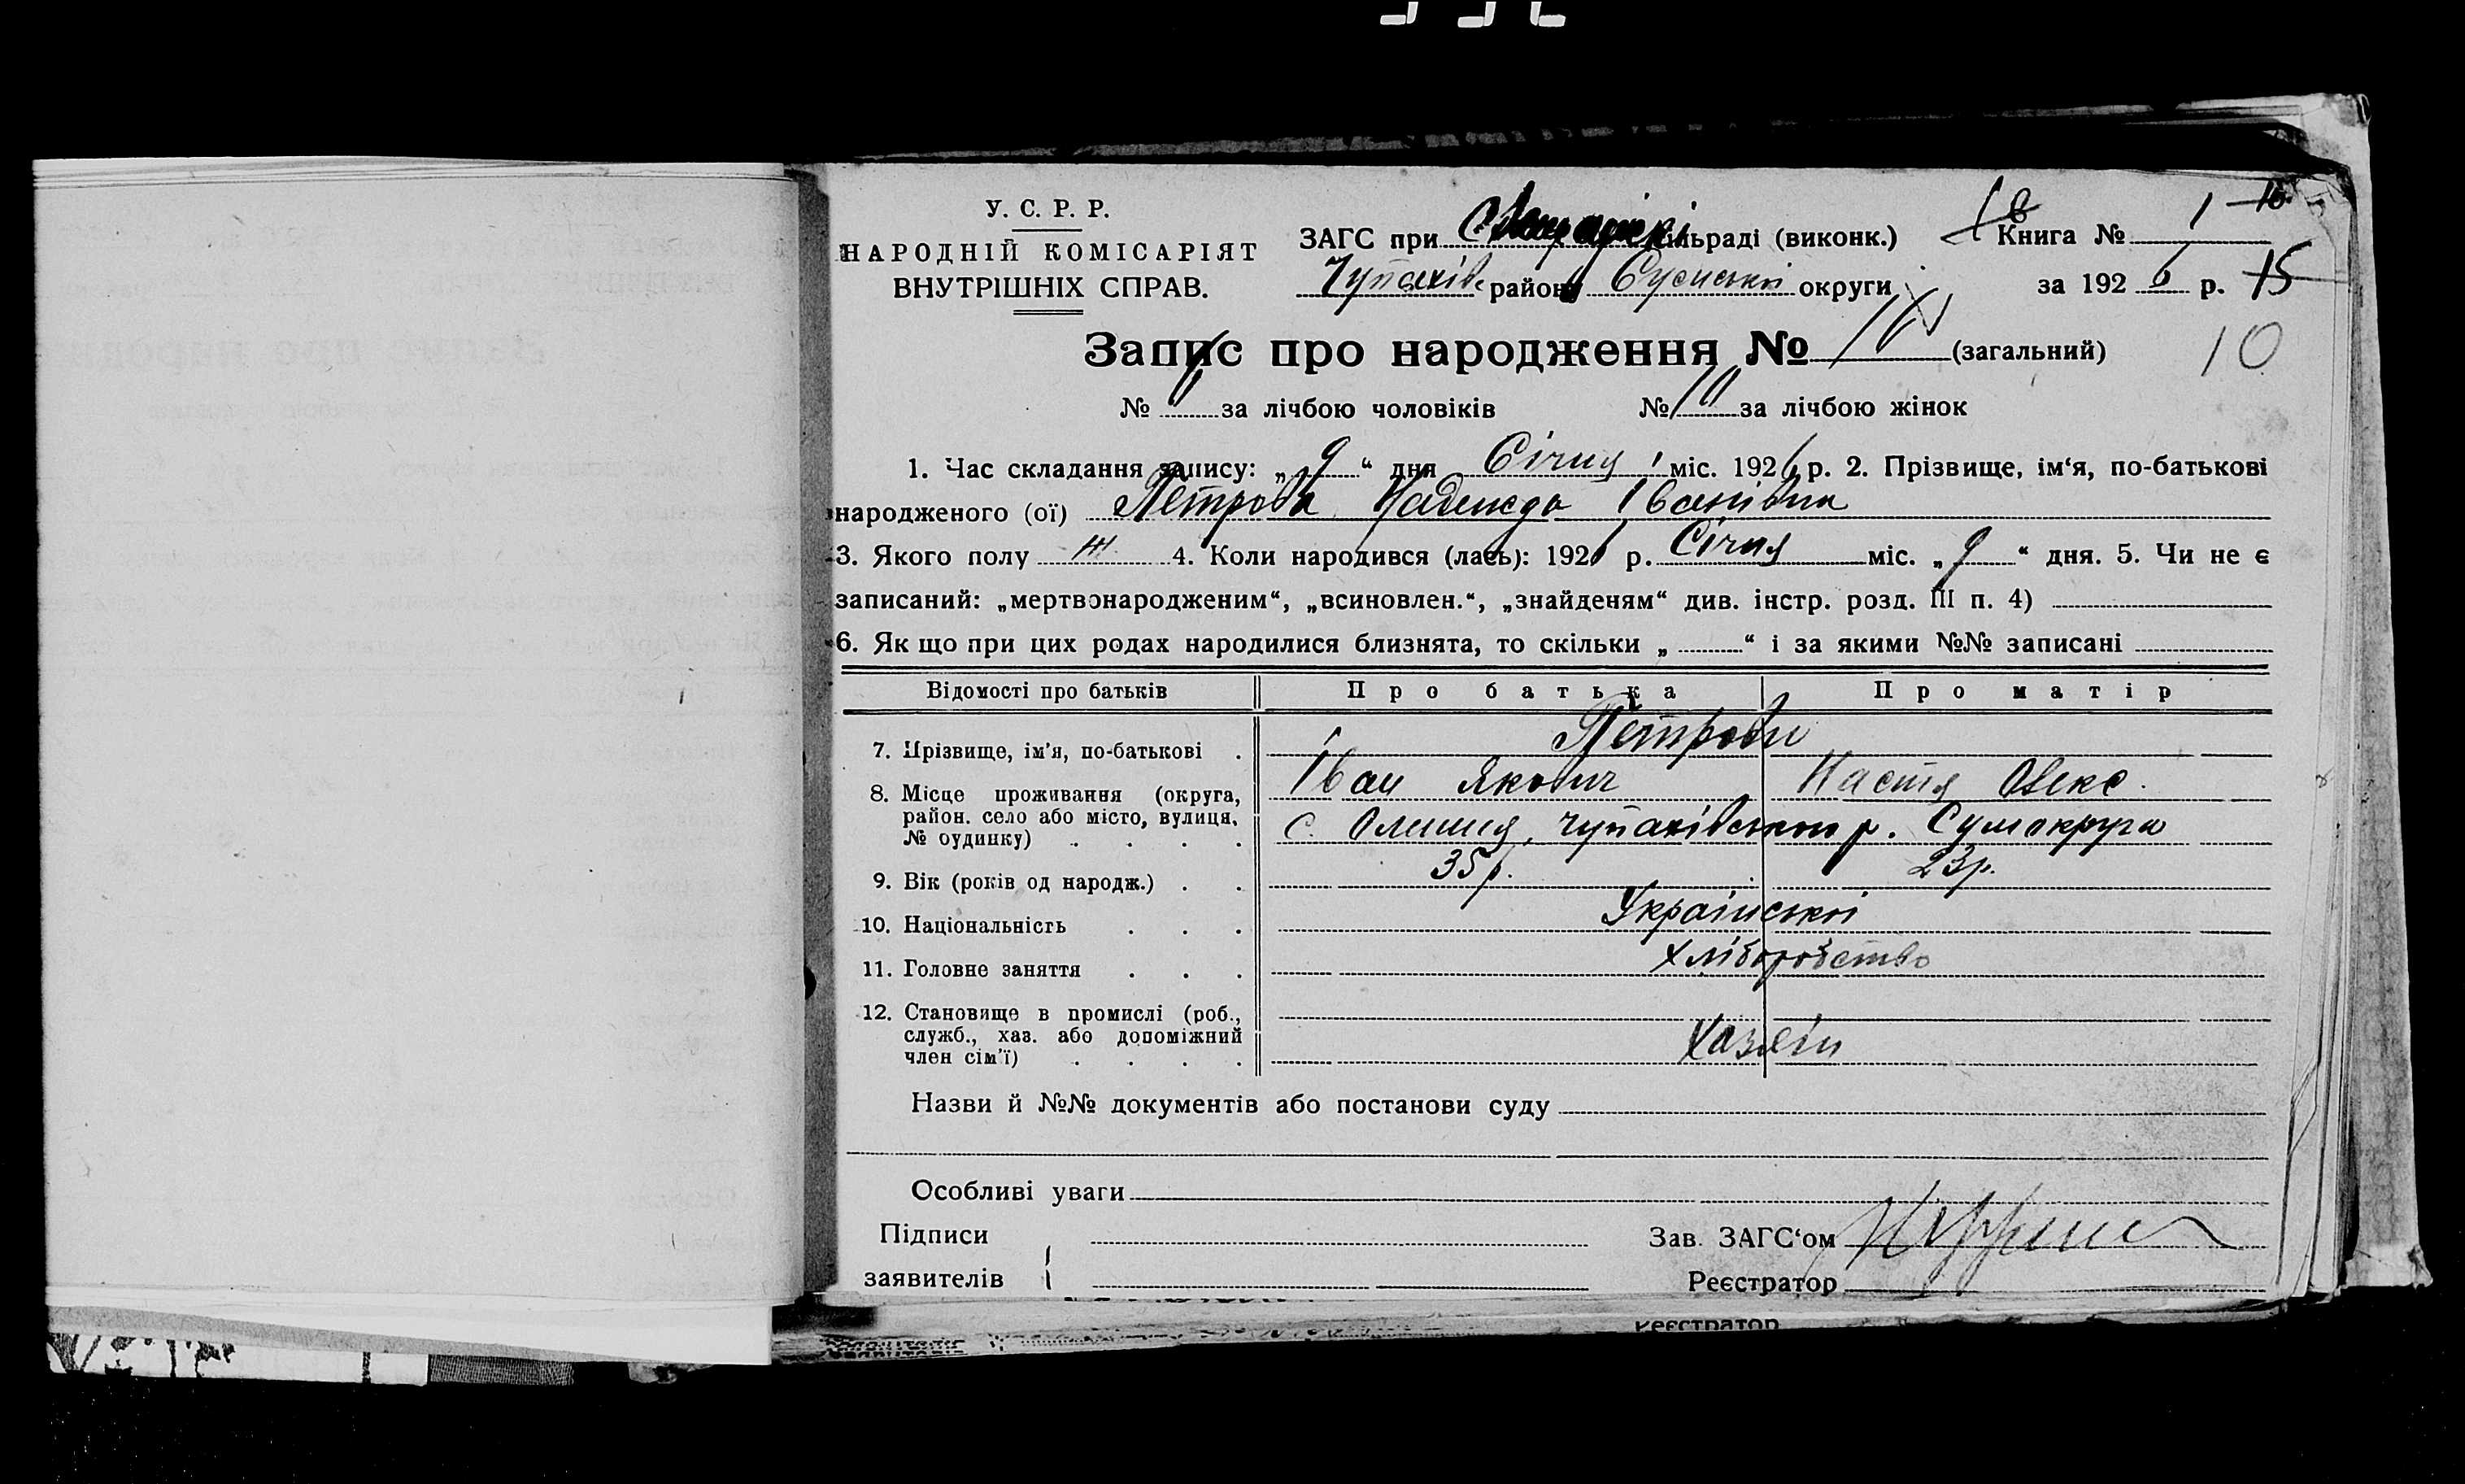 У. С. Р. Р.
НАРОДНІЙ КОМІСАРІЯТ
ВНУТРІШНІХ СПРАВ.
ЗАГС при сільраді (виконк.)
Чупахівс району Сумської округи
Книга № 1
за 1926 р. 15
10
Запис про народження № 16 (загальний)
№ за лічбою чоловіків № 10 за лічбою жінок
1. Час складання запису: „9“ дня Січня міс. 1926 р. 2. Прізвище, ім‘я, по-батькові
народженого (ої) Петрова Надежда Іванівна
3. Якого полу ж 4. Коли народився (лась): 1926 р. Січня міс. „9“ дня. 5. Чи не є
записаний: „мертвонародженим“, „всиновлен.“, „знайденям“ див. інстр. розд. III п. 4)
6. Як що при цих родах народилися близнята, то скільки „ “ і за якими №№ записані
Відомості про батьків Про батька Про матір
7. Прізвище, ім'я, по-батькові . Петрови
Іван Якович Настя Олекс.
8. Місце проживання (округа,
район. село або місто, вулиця,
№ будинку) . . . . с. Олешня, Чупахівського р. Сумокруга
9. Вік (років од народж.) . . 35 р. 23 р.
10. Національність . . . Української
11. Головне заняття . . . Хліборобство
12. Становище в промислі (роб.,
служб., хаз. або допоміжний
член сім'ї) . . . . Хазяїн
Назви й №№ документів або постанови суду
Особливі уваги
Підписи
заявителів
Зав. ЗАГС‘ом
Реєстратор
Реєстратор